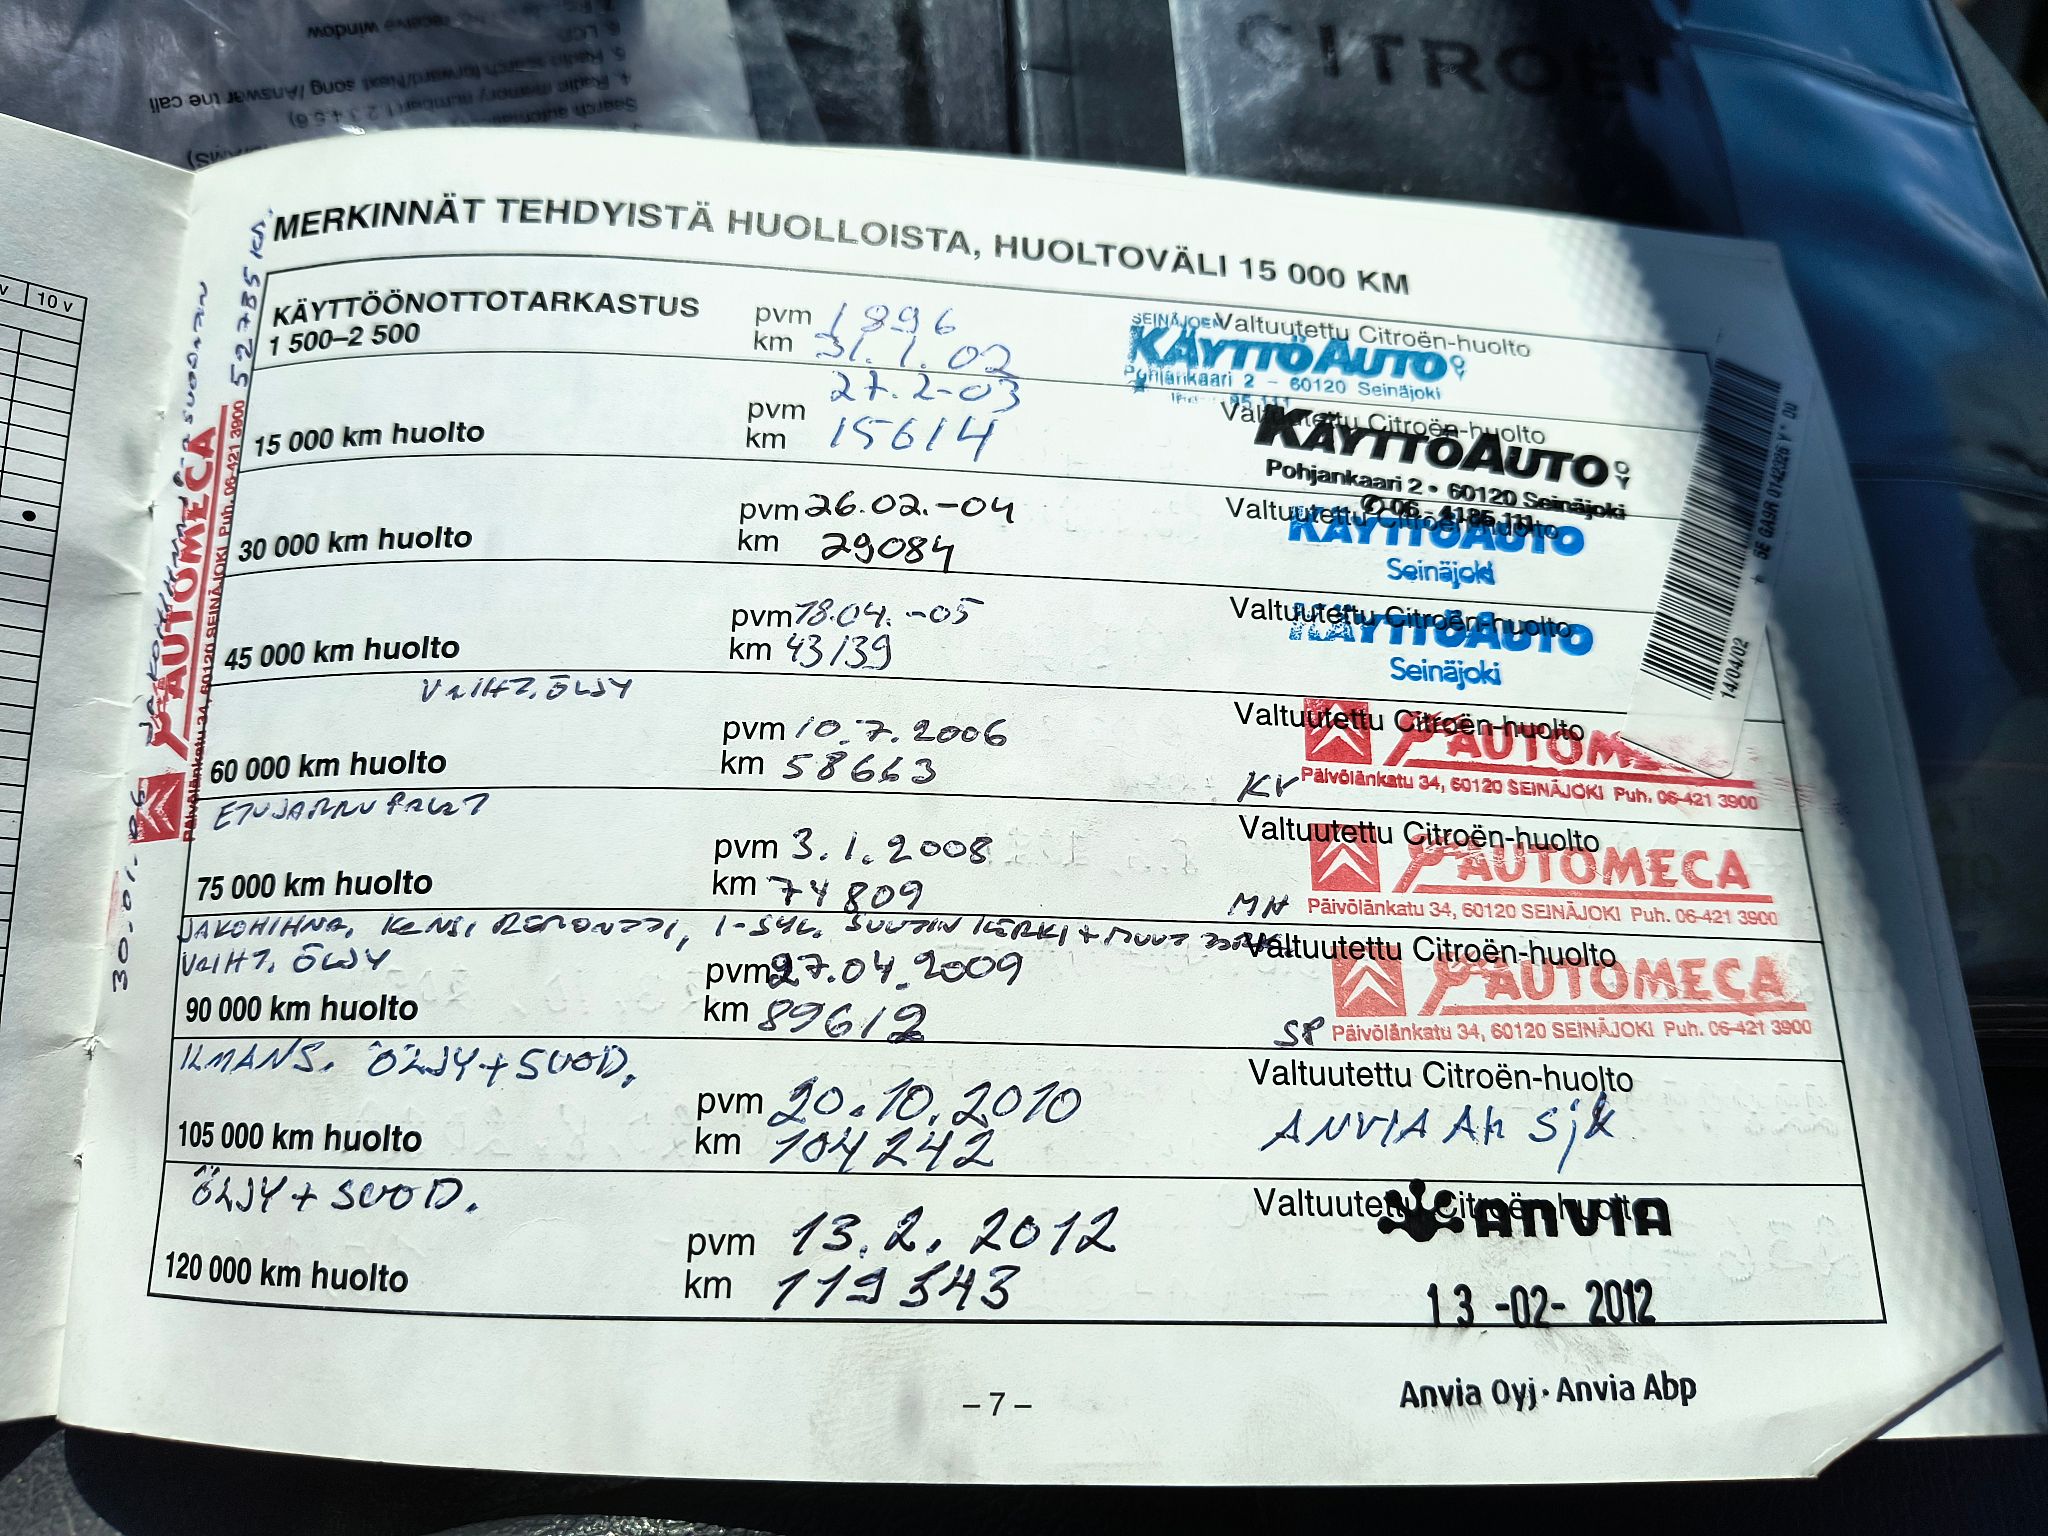 CITROËN
6. LCD
receive window
5. Radio search forward/Next song /Answer the call
4. Radio memory number(1.2.3.4.5.6)
10 v
MERKINNÄT TEHDYISTÄ HUOLLOISTA, HUOLTOVÄLI 15 000 KM
KÄYTTÖÖNOTTOTARKASTUS
1 500–2 500
pvm 1896
km 31.1.02
Valtuutettu Citroën-huolto
SEINÄJOEN
KÄYTTÖAUTO OY
Pohjankaari 2 - 60120 Seinäjoki
15 000 km huolto
pvm 27.2-03
km 15614
Valtuutettu Citroën-huolto
KÄYTTÖAUTO OY
Pohjankaari 2 • 60120 Seinäjoki
✆ 06 - 4186 111
30 000 km huolto
pvm 26.02.-04
km 29084
Valtuutettu Citroën-huolto
KÄYTTÖAUTO
Seinäjoki
45 000 km huolto
pvm 18.04.-05
km 43139
Valtuutettu Citroën-huolto
KÄYTTÖAUTO
Seinäjoki
VAIHT. ÖLJY
60 000 km huolto
pvm 10.7.2006
km 58663
Valtuutettu Citroën-huolto
KV
AUTOM
Päivölänkatu 34, 60120 SEINÄJOKI Puh. 06-421 3900
ETUJARRUPALAT
75 000 km huolto
pvm 3.1.2008
km 74809
Valtuutettu Citroën-huolto
MH
AUTOMECA
Päivölänkatu 34, 60120 SEINÄJOKI Puh. 06-421 3900
JAKOHIHNA, KANSI REMONTTI, 1-SYL. SUUTIN KÄRKI + MUUT
VAIHT. ÖLJY
90 000 km huolto
pvm 27.04.2009
km 89612
Valtuutettu Citroën-huolto
SP
AUTOMECA
Päivölänkatu 34, 60120 SEINÄJOKI Puh. 06-421 3900
ILMANS. ÖLJY + SUOD.
105 000 km huolto
pvm 20.10.2010
km 104242
Valtuutettu Citroën-huolto
ANVIA Ah Sjk
ÖLJY + SUOD.
120 000 km huolto
pvm 13.2.2012
km 119343
Valtuutettu Citroën-huolto
ANVIA
13 -02- 2012
Anvia Oyj · Anvia Abp
– 7 –
30.01.06 JAKOHIHNA
52785 KM
AUTOMECA
Päivölänkatu 34, 60120 SEINÄJOKI Puh. 06-421 3900
14/04/02